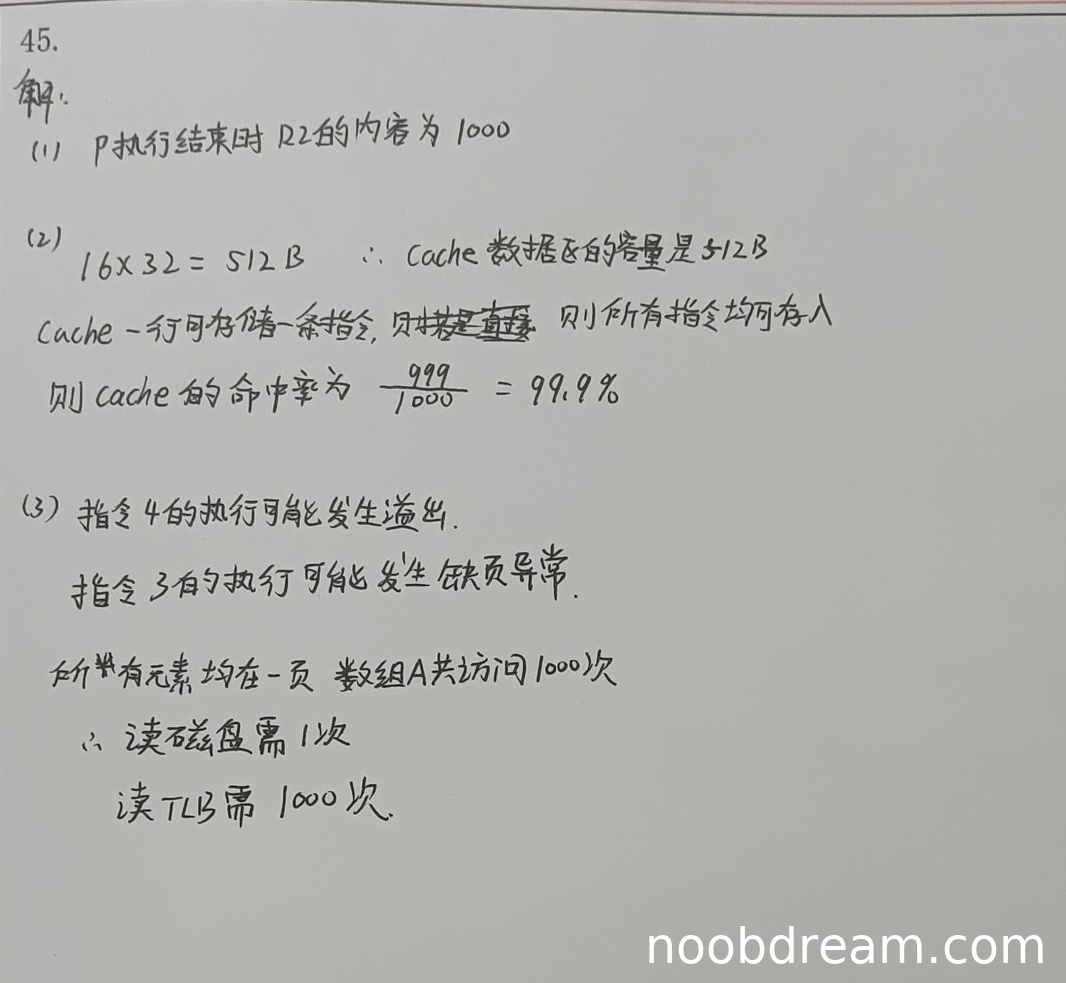 45.
解:
(1) P执行结束时 R2的内容为 1000
(2)
16×32 = 512B ∴ Cache 数据区的容量是512B
Cache 一行可存储一条指令, 则所有指令均可存入
则 Cache 的命中率为 999/1000 = 99.9%
(3) 指令4的执行可能发生溢出.
指令3的执行可能发生缺页异常.
所有元素均在一页 数组A共访问1000次
∴ 读磁盘需1次
读TLB需 1000次.
noobdream.com